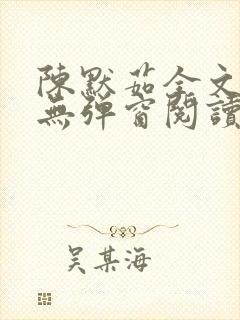 陳默茹全文
無彈窗閱讀
吴某海